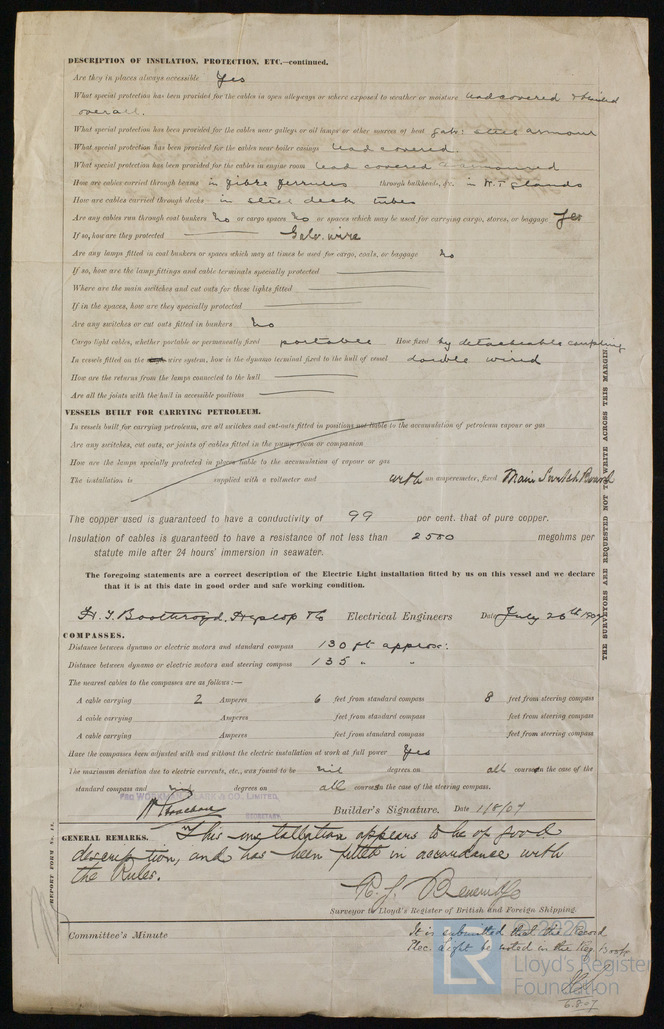 DESCRIPTION OF INSULATION, PROTECTION, ETC.—continued.
Are they in places always accessible Yes
What special protection has been provided for the cables in open alleyways or where exposed to weather or moisture lead covered & braided
overall.
What special protection has been provided for the cables near galleys or oil lamps or other sources of heat galv: steel armour
What special protection has been provided for the cables near boiler casings lead covered.
What special protection has been provided for the cables in engine room lead covered & armoured
How are cables carried through beams in fibre ferrules through bulkheads, &c. in W.T. glands
How are cables carried through decks in steel deck tubes
Are any cables run through coal bunkers No or cargo spaces No or spaces which may be used for carrying cargo, stores, or baggage Yes
If so, how are they protected Galv. wire
Are any lamps fitted in coal bunkers or spaces which may at times be used for cargo, coals, or baggage No
If so, how are the lamp fittings and cable terminals specially protected
Where are the main switches and cut outs for these lights fitted
If in the spaces, how are they specially protected
Are any switches or cut outs fitted in bunkers No
Cargo light cables, whether portable or permanently fixed portable How fixed by detachable coupling
In vessels fitted on the wire system, how is the dynamo terminal fixed to the hull of vessel double wired
How are the returns from the lamps connected to the hull
Are all the joints with the hull in accessible positions
VESSELS BUILT FOR CARRYING PETROLEUM.
In vessels built for carrying petroleum, are all switches and cut-outs fitted in positions not liable to the accumulation of petroleum vapour or gas
Are any switches, cut outs, or joints of cables fitted in the pump room or companion
How are the lamps specially protected in places liable to the accumulation of vapour or gas
The installation is supplied with a voltmeter and with an amperemeter, fixed Main Switch Board
The copper used is guaranteed to have a conductivity of 99 per cent. that of pure copper.
Insulation of cables is guaranteed to have a resistance of not less than 2500 megohms per
statute mile after 24 hours' immersion in seawater.
The foregoing statements are a correct description of the Electric Light installation fitted by us on this vessel and we declare
that it is at this date in good order and safe working condition.
Electrical Engineers Date July 26th 1907
COMPASSES.
Distance between dynamo or electric motors and standard compass 130 ft approx:
Distance between dynamo or electric motors and steering compass 135 " "
The nearest cables to the compasses are as follows:—
A cable carrying 2 Amperes 6 feet from standard compass 8 feet from steering compass
A cable carrying Amperes feet from standard compass feet from steering compass
A cable carrying Amperes feet from standard compass feet from steering compass
Have the compasses been adjusted with and without the electric installation at work at full power Yes
The maximum deviation due to electric currents, etc., was found to be nil degrees on all courses in the case of the
standard compass and nil degrees on all courses in the case of the steering compass.
PRO WORKMAN, CLARK & CO. LIMITED,
SECRETARY.
Builder's Signature. Date 1/8/07
GENERAL REMARKS. This installation appears to be of good
description, and has been fitted in accordance with
the Rules.
R. J. Beveridge
Surveyor to Lloyd's Register of British and Foreign Shipping.
Committee's Minute
It is submitted that the Record
Elec. Light be noted in the Reg. Book
6.8.07
REPORT FORM No. 14.
THE SURVEYORS ARE REQUESTED NOT TO WRITE ACROSS THIS MARGIN.
© 2020
LR
Lloyd's Register
Foundation